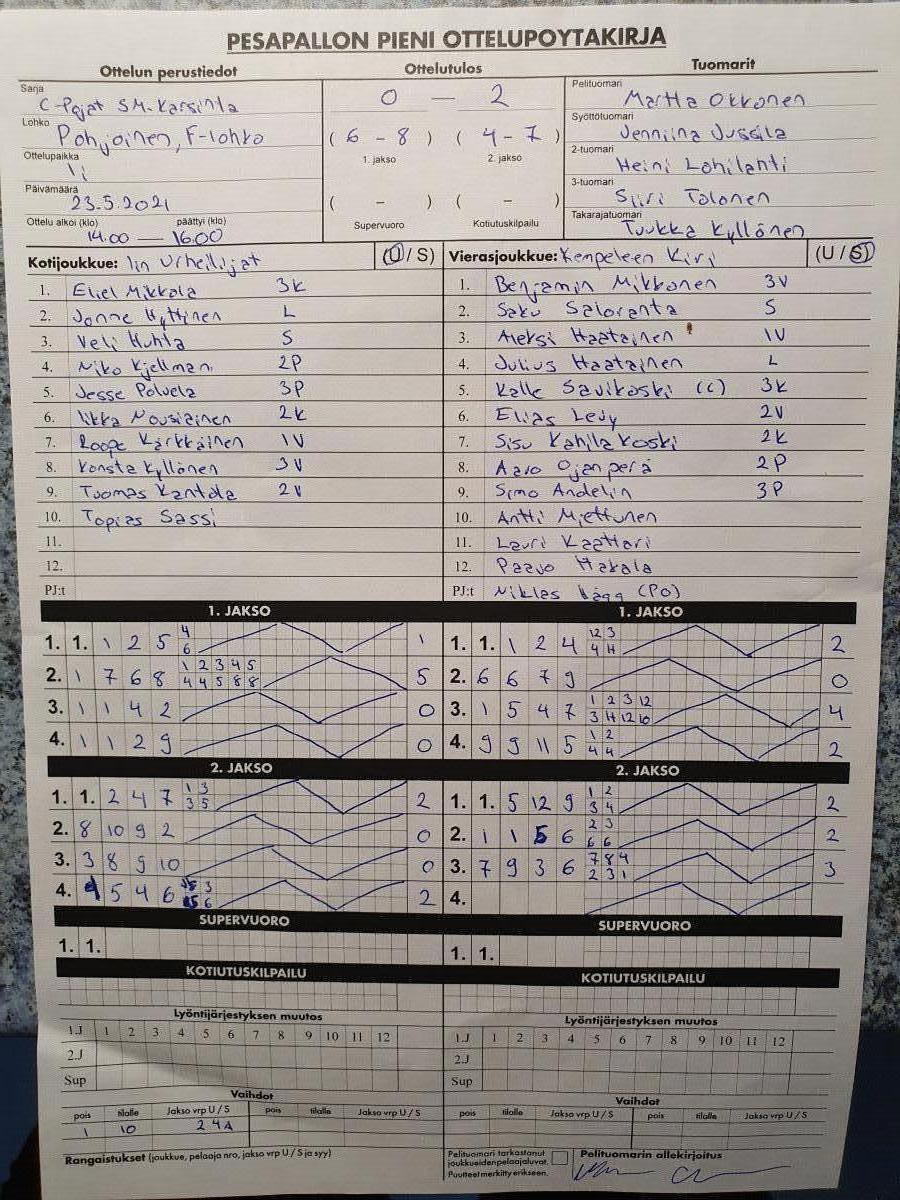 PESAPALLON PIENI OTTELUPOYTAKIRJA
Ottelun perustiedot Ottelutulos Tuomarit
Sarja
C-Pojat SM-Karsinta
Lohko
Pohjoinen, F-lohko
Ottelupaikka
Ii
Päivämäärä
23.5.2021
Ottelu alkoi (klo) päättyi (klo)
14.00 — 16.00
0 — 2
( 6 - 8 ) ( 4 - 7 )
1. jakso 2. jakso
( - ) ( - )
Supervuoro Kotiutuskilpailu
Pelituomari
Martta Okkonen
Syöttötuomari
Jenniina Jussila
2-tuomari
Heini Lohilahti
3-tuomari
Siiri Tolonen
Takarajatuomari
Tuukka Kyllönen
Kotijoukkue: Iin Urheilijat (U / S)
1. Eliel Mikkola 3K
2. Jonne Hyttinen L
3. Veli Huhta S
4. Niko Kjellman 2P
5. Jesse Polvela 3P
6. Iikka Nousiainen 2K
7. Roope Kärkkäinen 1V
8. Konsta Kyllönen 3V
9. Tuomas Kantola 2V
10. Topias Sassi
11.
12.
PJ:t
Vierasjoukkue: Kempeleen Kiri (U / S)
1. Benjamin Mikkonen 3V
2. Saku Saloranta S
3. Aleksi Haatainen 1V
4. Julius Haatainen L
5. Kalle Savikoski (C) 3K
6. Elias Levy 2V
7. Sisu Kahilakoski 2K
8. Aaro Ojanperä 2P
9. Simo Andelin 3P
10. Antti Miettunen
11. Lauri Kaattari
12. Paavo Hakala
PJ:t Niklas (PO)
1. JAKSO
1. 1. 1 2 5 4 1
6
2. 1 7 6 8 1 2 3 4 5 5
4 4 5 8 8
3. 1 1 4 2 0
4. 1 1 2 9 0
1. JAKSO
1. 1. 1 2 4 12 3 2
4 4
2. 6 6 7 9 0
3. 1 5 4 7 1 2 3 12 4
3 4 12 10
4. 9 9 11 5 1 2 2
4 4
2. JAKSO
1. 1. 2 4 7 1 3 2
3 5
2. 8 10 9 2 0
3. 3 8 9 10 0
4. 4 5 4 6 3 2
6
2. JAKSO
1. 1. 5 12 9 1 2 2
3 4
2. 1 1 5 6 2 3 2
6 6
3. 7 9 3 6 7 8 4 3
2 3 1
4.
SUPERVUORO
1. 1.
SUPERVUORO
1. 1.
KOTIUTUSKILPAILU
KOTIUTUSKILPAILU
Lyöntijärjestyksen muutos
1.J 1 2 3 4 5 6 7 8 9 10 11 12
2.J
Sup
Lyöntijärjestyksen muutos
1.J 1 2 3 4 5 6 7 8 9 10 11 12
2.J
Sup
Vaihdot
pois tilalle Jakso vrp U / S pois tilalle Jakso vrp U / S
1 10 2 4A
Vaihdot
pois tilalle Jakso vrp U / S pois tilalle Jakso vrp U / S
Rangaistukset (joukkue, pelaaja nro, jakso vrp U / S ja syy)
Pelituomari tarkastanut
joukkueidenpelaajaluvat.
Puutteet merkitty erikseen.
Pelituomarin allekirjoitus